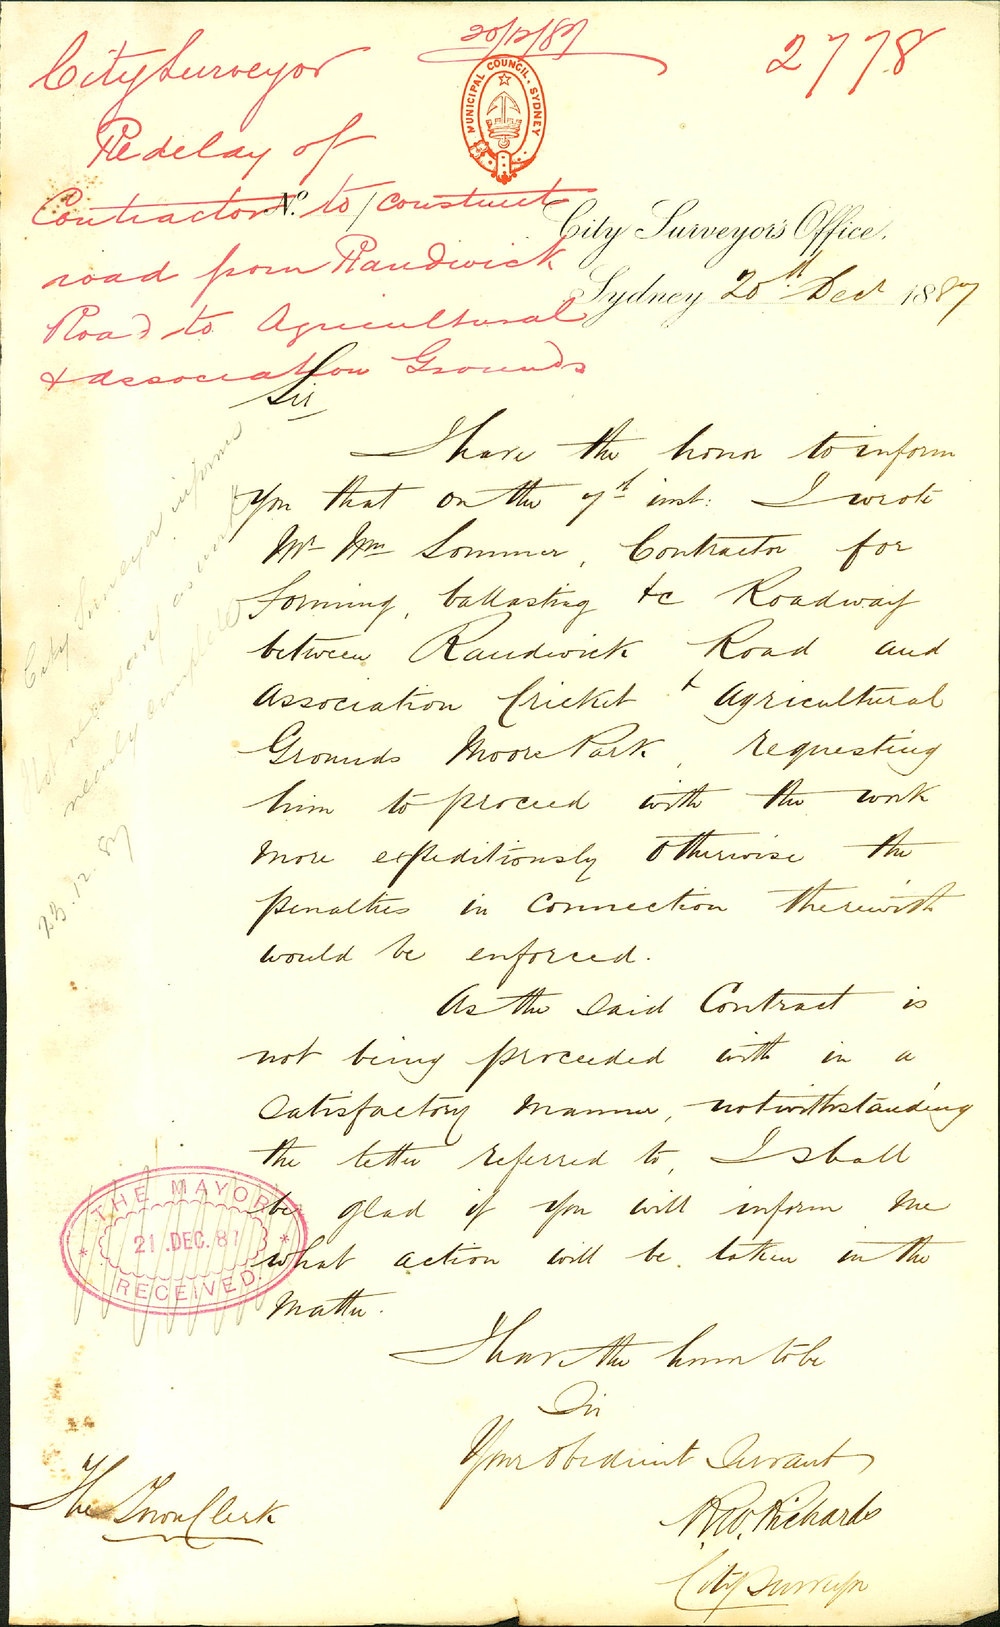 20/12/87
2778
City Surveyor
Re delay of
Contractor to construct
road from Randwick
Road to Agricultural
& association Grounds
MUNICIPAL COUNCIL. SYDNEY
No.
City Surveyor's Office.
Sydney 20th Decr 1887
Sir
I have the honor to inform
you that on the 7th inst: I wrote
Mr Wm Sommer, Contractor for
forming, ballasting &c Roadway
between Randwick Road and
Association Cricket & Agricultural
Grounds Moore Park, requesting
him to proceed with the work
more expeditiously otherwise the
penalties in connection therewith
would be enforced.
As the said Contract is
not being proceeded with in a
satisfactory manner, notwithstanding
the letter referred to, I shall
be glad if you will inform me
what action will be taken in the
matter.
I have the honor to be
Sir
Your obedient Servant
R.W. Richards
City Surveyor
The Town Clerk
THE MAYOR
21 .DEC. 87
RECEIVED
City Surveyor informs
Not necessary as work
nearly completed
23.12.87